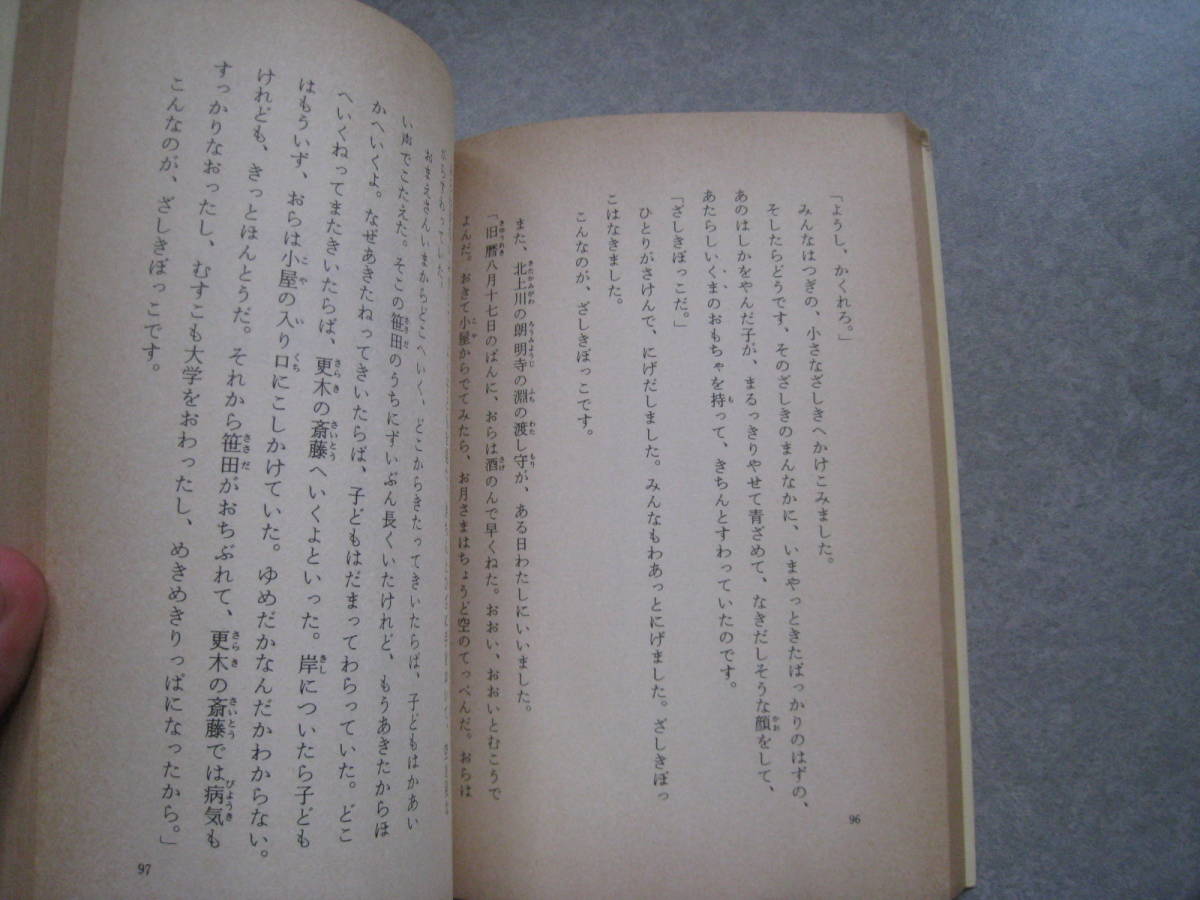 「ようし、かくれろ。」
みんなはつぎの、小さなざしきへかけこみました。
そしたらどうです、そのざしきのまんなかに、いまやっときたばっかりのはずの、
あのはしかをやんだ子が、まるっきりやせて青ざめて、なきだしそうな顔をして、
あたらしいくまのおもちゃを持って、きちんとすわっていたのです。
「ざしきぼっこだ。」
ひとりがさけんで、にげだしました。みんなもわあっとにげました。ざしきぼっ
こはなきました。
こんなのが、ざしきぼっこです。
また、北上川の朗明寺の淵の渡し守が、ある日わたしにいいました。
「旧暦八月十七日のばんに、おらは酒のんで早くねた。おおい、おおいとむこうで
よんだ。おきて小屋からでてみたら、お月さまはちょうど空のてっぺんだ。おらは
96
おまえさんいまからどこへいく、どこからきたってきいたらば、子どもはかあい
い声でこたえた。そこの笹田のうちにずいぶん長くいたけれど、もうあきたからほ
かへいくよ。なぜあきたねってきいたらば、子どもはだまってわらっていた。どこ
へいくねってまたきいたらば、更木の斎藤へいくよといった。岸についたら子ども
はもういず、おらは小屋の入り口にこしかけていた。ゆめだかなんだかわからない。
けれども、きっとほんとうだ。それから笹田がおちぶれて、更木の斎藤では病気も
すっかりなおったし、むすこも大学をおわったし、めきめきりっぱになったから。」
こんなのが、ざしきぼっこです。
97